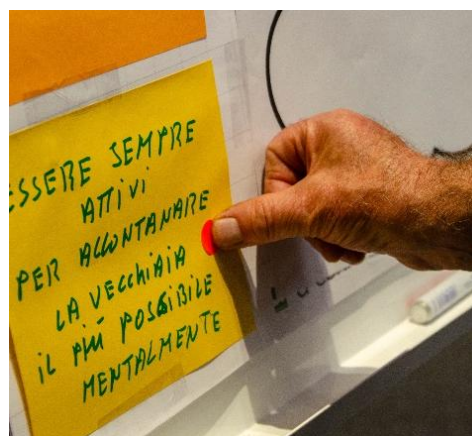 ESSERE SEMPRE
ATTIVI
PER ALLONTANARE
LA VECCHIAIA
IL PIÙ POSSIBILE
MENTALMENTE